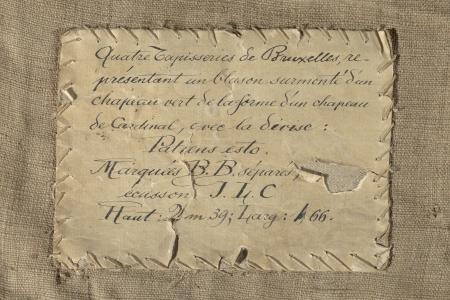 Quatre Tapisseries de Bruxelles, re-
présentant un blason surmonté d'un
chapeau vert de la forme d'un chapeau
de Cardinal, avec la dévise :
Patiens esto.
Marquées B. B. séparés,
écusson J. L. C
Haut: 2m 39; Larg: 66.